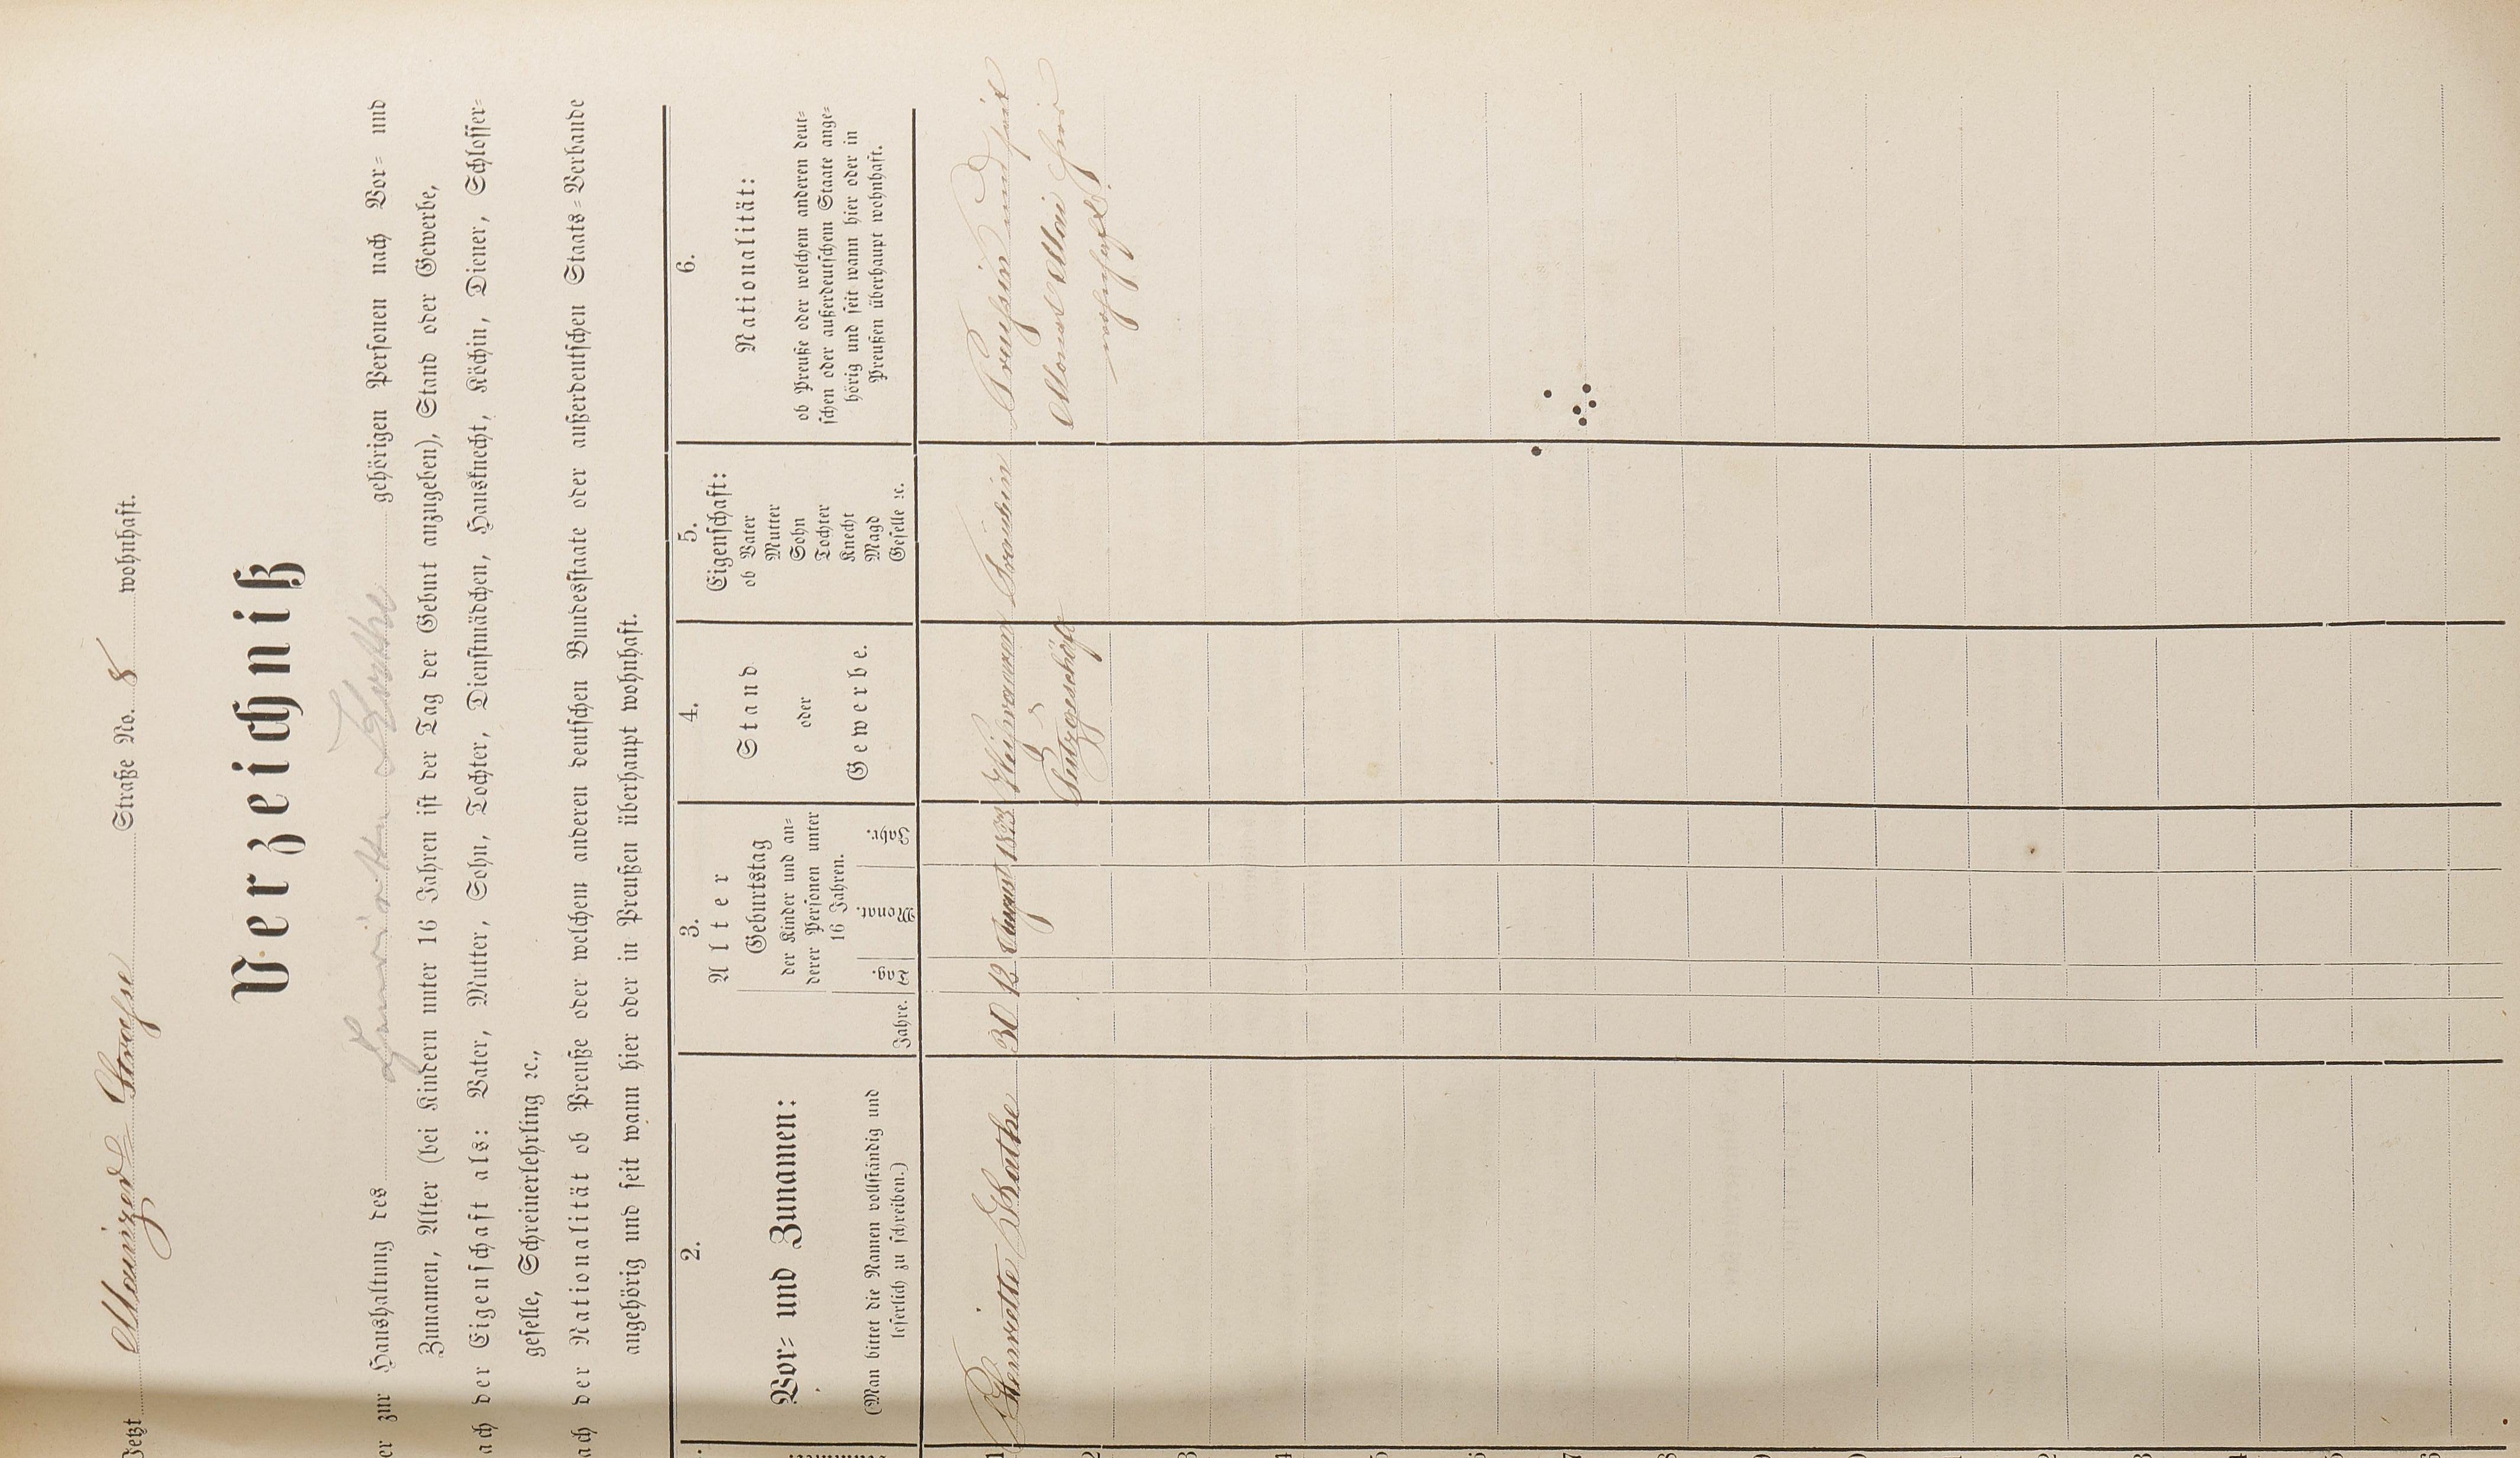 Jetzt Mainzer Strasse Straße No. 8 wohnhaft.
Verzeichniß
er zur Haushaltung des Henriette Rothe gehörigen Personen nach Vor= und
Zunamen, Alter (bei Kindern unter 16 Jahren ist der Tag der Geburt anzugeben), Stand oder Gewerbe,
ach der Eigenschaft als: Vater, Mutter, Sohn, Tochter, Dienstmädchen, Hausknecht, Köchin, Diener, Schlosser=
geselle, Schreinerlehrling ꝛc.,
ach der Nationalität ob Preuße oder welchem anderen deutschen Bundesstaate oder außerdeutschen Staats=Verbande
angehörig und seit wann hier oder in Preußen überhaupt wohnhaft.
2.
Vor= und Zunamen:
(Man bittet die Namen vollständig und
leserlich zu schreiben.)
3.
Alter
Geburtstag
der Kinder und an=
derer Personen unter
16 Jahren.
Jahre.
Tag.
Monat.
Jahr.
4.
Stand
oder
Gewerbe.
5.
Eigenschaft:
ob Vater
Mutter
Sohn
Tochter
Knecht
Magd
Geselle ꝛc.
6.
Nationalität:
ob Preuße oder welchem anderen deut=
schen oder außerdeutschem Staate ange=
hörig und seit wann hier oder in
Preußen überhaupt wohnhaft.
1 Henriette Rothe 30 12 August Weißwaaren Fräulein Preussin und seit
Putzgeschäft Monat Mai hier
wohnhaft.
2
3
4
5
6
7
8
9